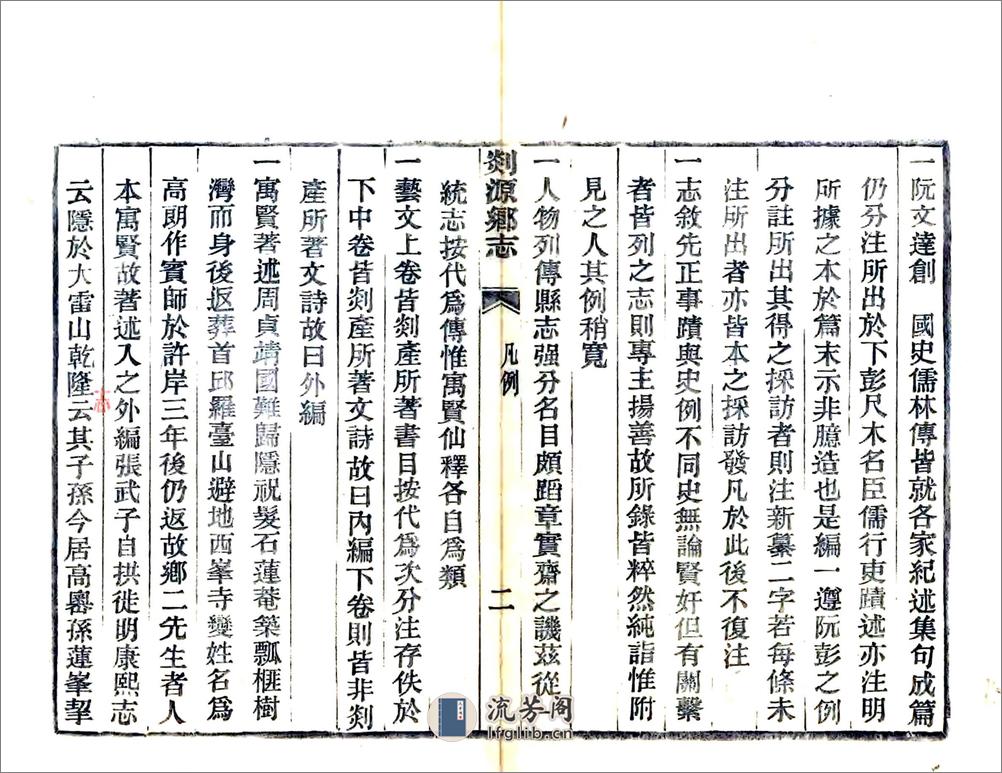 一阮文達創　國史儒林傳皆就各家紀述集句成篇
仍分注所出於下彭尺木名臣儒行吏蹟述亦注明
所據之本於篇末示非臆造也是編一遵阮彭之例
分註所出其得之採訪者則注新纂二字若每條未
注所出者亦皆本之採訪發凡於此後不復注
一志敘先正事蹟與史例不同史無論賢奸但有關繫
者皆列之志則專主揚善故所錄皆粹然純詣惟附
見之人其例稍寬
一人物列傳縣志强分名目頗蹈章實齋之譏茲從
剡源鄉志
凡例
二
統志按代爲傳惟寓賢仙釋各自爲類
一藝文上卷皆剡產所著書目按代爲次分注存佚於
下中卷皆剡產所著文詩故曰內編下卷則皆非剡
產所著文詩故曰外編
一寓賢著述周貞靖國難歸隱祝髮石蓮菴築瓢榧樹
灣而身後返葬首邱羅臺山避地西峯寺變姓名爲
高朗作賓師於許岸三年後仍返故鄉二先生者人
本寓賢故著述入之外編張武子自拱徙明康熙志
云隱於大雷山乾隆云其子孫今居高嶴孫蓮峯挈
志
流芳阁
lfglib.cn